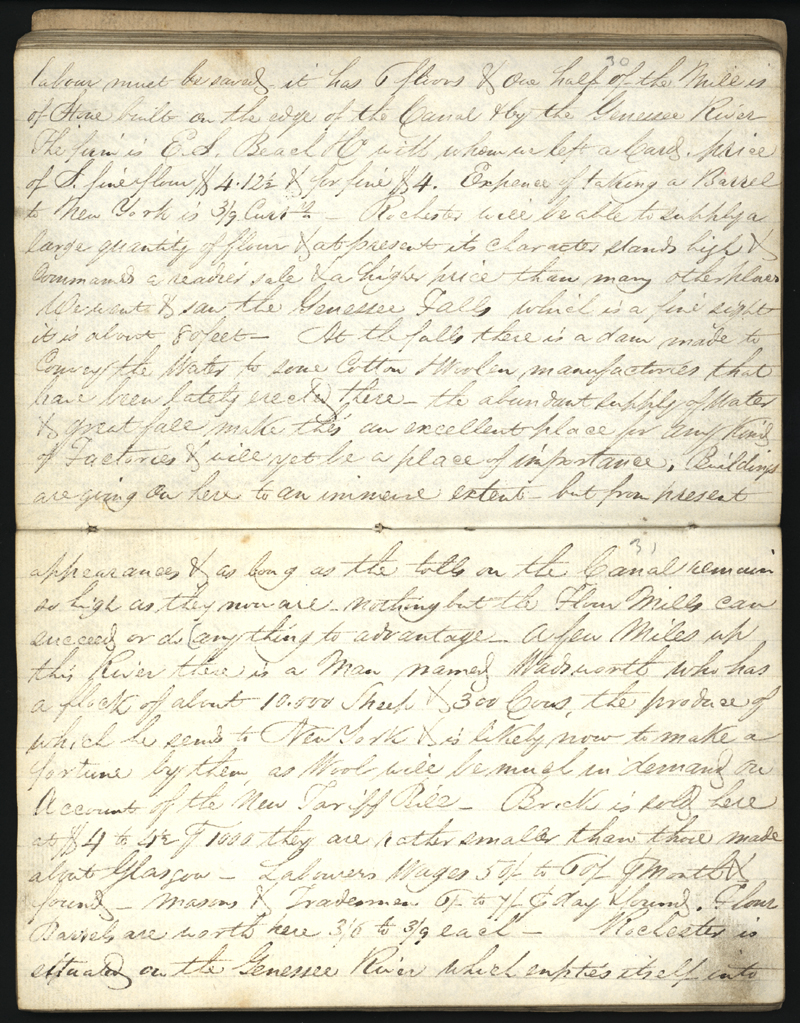 30
labour must be saved it has 6 floors & one half of the Mill is
of Stone built on the edge of the Canal & by the Genessee River
The firm is E.S. Beach & Co with whom we left a Card. price
of S. fine flour $4.12½ & for fine $4. Expence of taking a Barrel
to New York is 3/9 Curr.cy – Rochester will be able to supply a
large quantity of flour & at present its character stands high &
Commands a readier sale & a higher price than many other places
We went & saw the Genessee Falls which is a fine sight
it is about 80 feet – At the falls there is a dam made to
Convey the Water to some Cotton & Woolen manufactories that
have been lately erected there – the abundant supply of Water
& great fall make this an excellent place for any kind
of Factories & will yet be a place of importance. Buildings
are going on here to an immense extent – but from present
31
appearances & as long as the tolls on the Canal remain
so high as they now are – nothing but the Flour Mills can
succeed or do anything to advantage – A few Miles up
this River there is a Man named Wadsworth who has
a flock of about 10.000 Sheep & 300 Cows, the produce of
which he sends to New York & is likely now to make a
fortune by them as Wool will be much in demand on
Account of the New Tariff Bill – Brick is sold here
at $4 to 4½ 1000 they are rather smaller than those made
about Glasgow – Labourers Wages 50/ to 60/ Month &
found – Masons & Tradesmen 6/ to 7/ day & found. Flour
Barrels are worth here 3/6 to 3/9 each – Rochester is
situated on the Genessee River which empties itself into